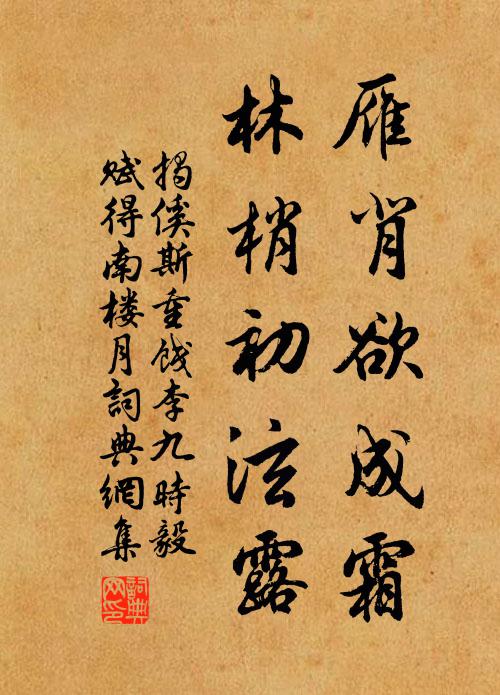 雁背欲成霜
林梢初泫露
揭傒斯重饯李九時毅
赋得南楼月詞典網集
詞典网印